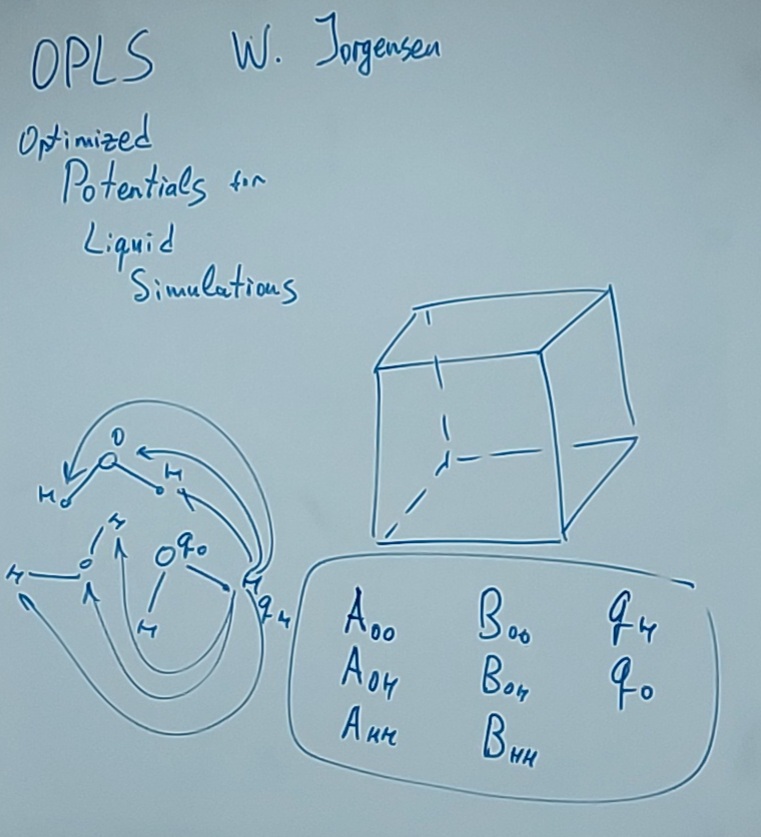 OPLS W. Jorgensen
Optimized
Potentials for
Liquid
Simulations
O
H
H
H
H
O q₀
H
H
q_H
A_OO B_OO q_H
A_OH B_OH q_O
A_HH B_HH